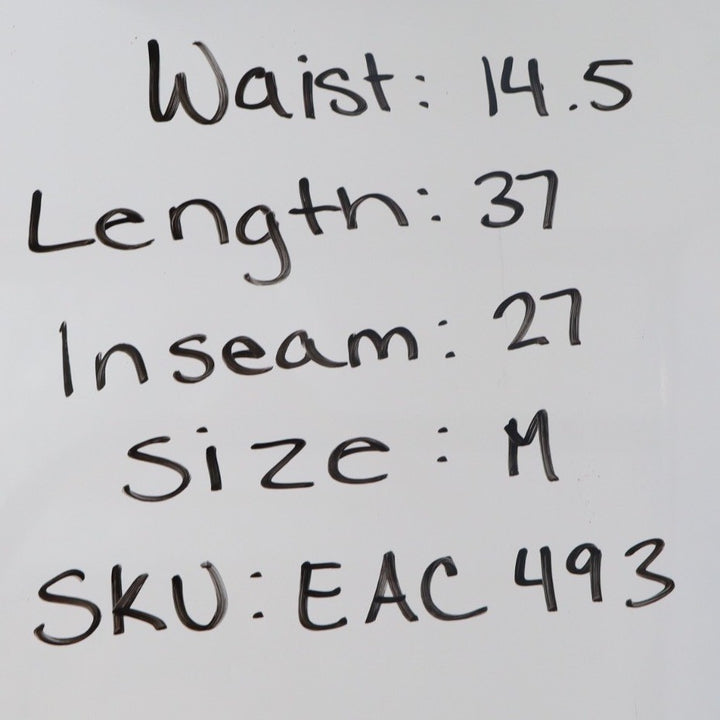 Waist: 14.5
Length: 37
Inseam: 27
Size: M
SKU: EAC 493